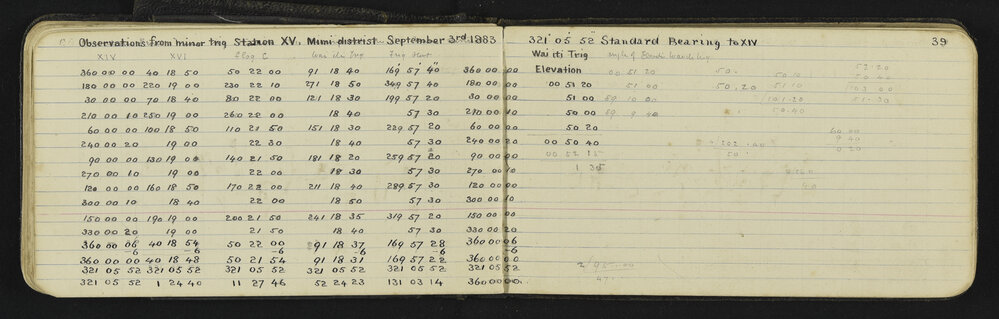 Observations from minor trig Station XV. Mimi district. September 3rd 1883
XIV XVI Flag C Wai iti Trig Trig
360 00 00 40 18 50 50 22 00 91 18 40 169 57 40 360 00 00
180 00 00 220 19 00 230 22 10 271 18 50 349 57 40 180 00 00
30 00 00 70 18 40 80 22 00 121 18 30 199 57 20 30 00 00
210 00 10 250 19 00 260 22 00 18 40 57 30 210 00 10
60 00 00 100 18 50 110 21 50 151 18 30 229 57 20 60 00 00
240 00 20 19 00 22 30 18 40 57 30 240 00 20
90 00 00 130 19 00 140 21 50 181 18 20 259 57 20 90 00 00
270 00 10 19 00 22 00 18 30 57 30 270 00 10
120 00 00 160 18 50 170 22 00 211 18 40 289 57 30 120 00 00
300 00 10 18 40 22 00 18 50 57 30 300 00 10
150 00 00 190 19 00 200 21 50 241 18 35 319 57 20 150 00 00
330 00 20 19 00 21 50 18 40 57 30 330 00 20
360 00 06 40 18 54 50 22 00 91 18 37 169 57 28 360 00 06
-6 -6 -6 -6 -6 -6
360 00 00 40 18 48 50 21 54 91 18 31 169 57 22 360 00 00
321 05 52 321 05 52 321 05 52 321 05 52 321 05 52 321 05 52
321 05 52 1 24 40 11 27 46 52 24 23 131 03 14 360 00 00
321° 05' 52" Standard Bearing to XIV
39
Wai iti Trig
Elevation 00 51 20 50. 50.10 50 40
00 51 20 51 00 50.20 51.10 103 00
51 00 59 10 00 101.20 51.30
50 00 59 9 40 50.40
50 20 60.00
00 50 40 9 40
00 52 15 50 0 20
1 35
40
2/95.00
47